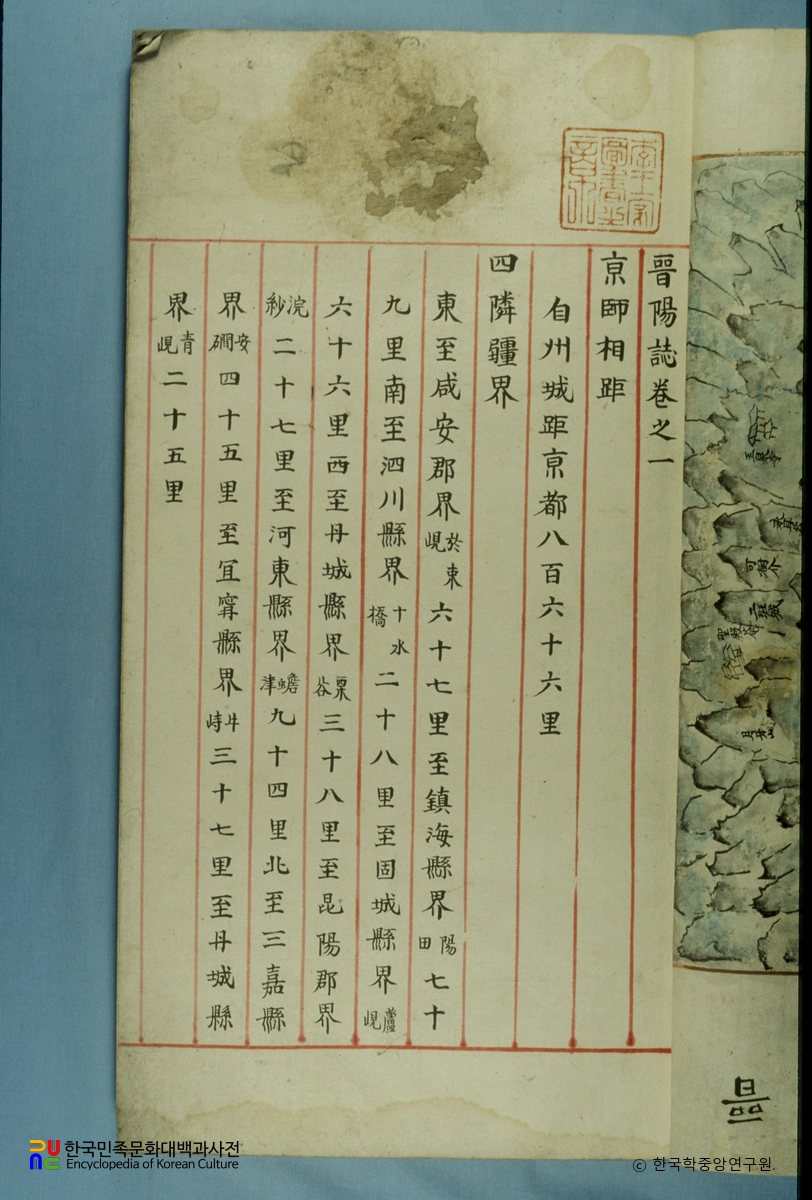 晉陽誌卷之一
亰師相距
自州城距亰都八百六十六里
四隣疆界
東至咸安郡界於束峴六十七里至鎭海縣界陽田七十
九里南至泗川縣界十水橋二十八里至固城縣界蘆峴
六十六里西至丹城縣界栗谷三十八里至昆陽郡界
浣紗二十七里至河東縣界蟾津九十四里北至三嘉縣
界安磵四十五里至宜寧縣界斗峙三十七里至丹城縣
界青峴二十五里
李王家圖書之章
한국민족문화대백과사전
Encyclopedia of Korean Culture
ⓒ 한국학중앙연구원